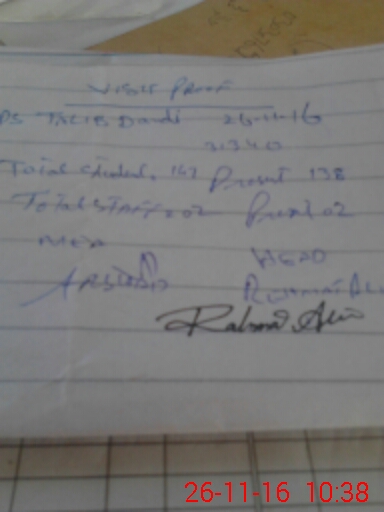 Visit Proof
PS TALIB Dandi 26-11-16
31340
Total student. 147 Present 138
Total STAFF. 02 Present 02
MEA HEAD
ARSHAD Rahmat Ali
Rahmat Ali
26-11-16 10:38